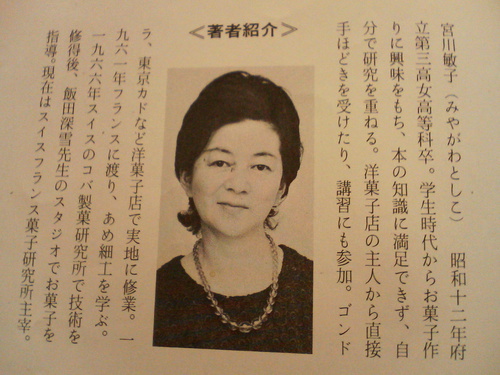 ＜著者紹介＞
宮川敏子（みやがわとしこ）　昭和十二年府
立第三高女高等科卒。学生時代からお菓子作
りに興味をもち、本の知識に満足できず、自
分で研究を重ねる。洋菓子店の主人から直接
手ほどきを受けたり、講習にも参加。ゴンド
ラ、東京カドなど洋菓子店で実地に修業。一
九六一年フランスに渡り、あめ細工を学ぶ。
一九六六年スイスのコバ製菓研究所で技術を
修得後、飯田深雪先生のスタジオでお菓子を
指導。現在はスイスフランス菓子研究所主宰。